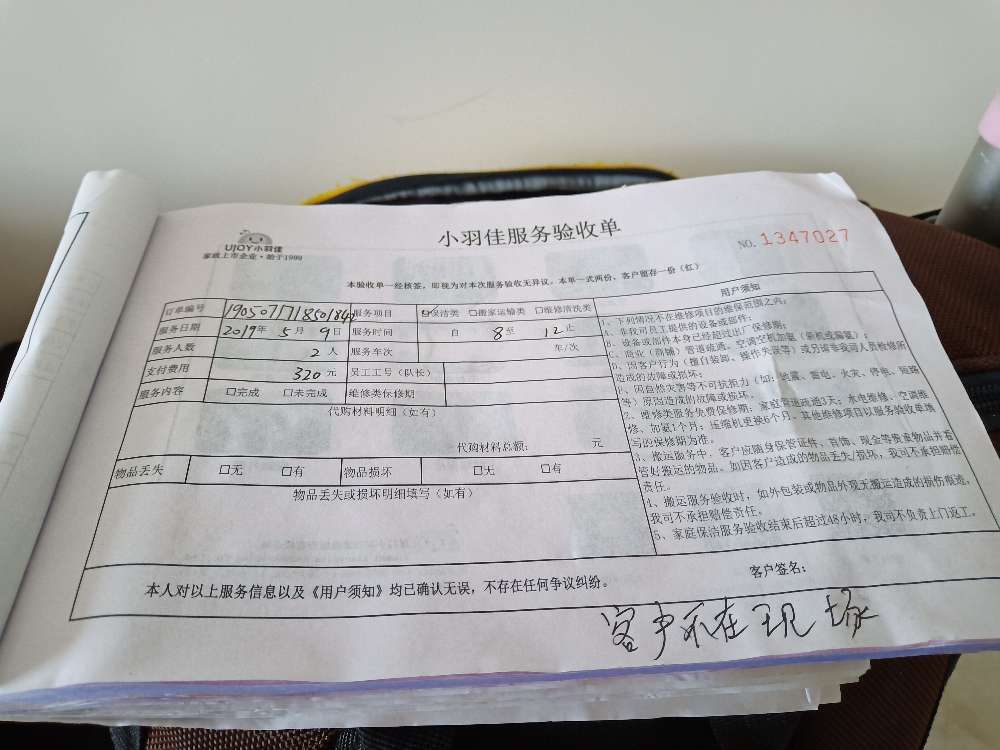 UJOY小羽佳
家政上市企业·始于1999
小羽佳服务验收单
NO. 1347027
本验收单一经核签，即视为对本次服务验收无异议。本单一式两份，客户留存一份（红）
订单编号 服务项目 ☑保洁类 □搬家运输类 □维修清洗类
服务日期 2019年 5月 9日 服务时间 自 8 至 12 止
服务人数 2人 服务车次 车/次
支付费用 320元 员工工号（队长）
服务内容 □完成 □未完成 维修类保修期
代购材料明细（如有）
代购材料总额： 元
物品丢失 □无 □有 物品损坏 □无 □有
物品丢失或损坏明细填写（如有）
用户须知
1、下列情况不在维修项目的维保范围之内：
A、非我司员工提供的设备或部件；
B、设备或部件本身已经超过出厂保修期；
C、商业（店铺）管道疏通、空调空机加氨（新机或漏氨）；
D、因客户行为（擅自装卸、操作失误等）或另请非我司人员检修所
造成的故障或损坏；
E、因自然灾害等不可抗拒力（如：地震、雷电、火灾、停电、短路
等）原因造成的故障或损坏。
2、维修类服务免费保修期：家庭管道疏通3天，水电维修、空调维
修、加氨1个月；压缩机更换6个月，其他维修项目以服务验收单填
写的保修期为准。
3、搬运服务中，客户应随身保管证件、首饰、现金等贵重物品并看
管好搬运的物品。如因客户造成的物品丢失/损坏，我司不承担赔偿
责任。
4、搬运服务验收时，如外包装或物品外观无搬运造成的损伤痕迹，
我司不承担赔偿责任。
5、家庭保洁服务验收结束后超过48小时，我司不负责上门返工。
本人对以上服务信息以及《用户须知》均已确认无误，不存在任何争议纠纷。
客户签名：
客户不在现场